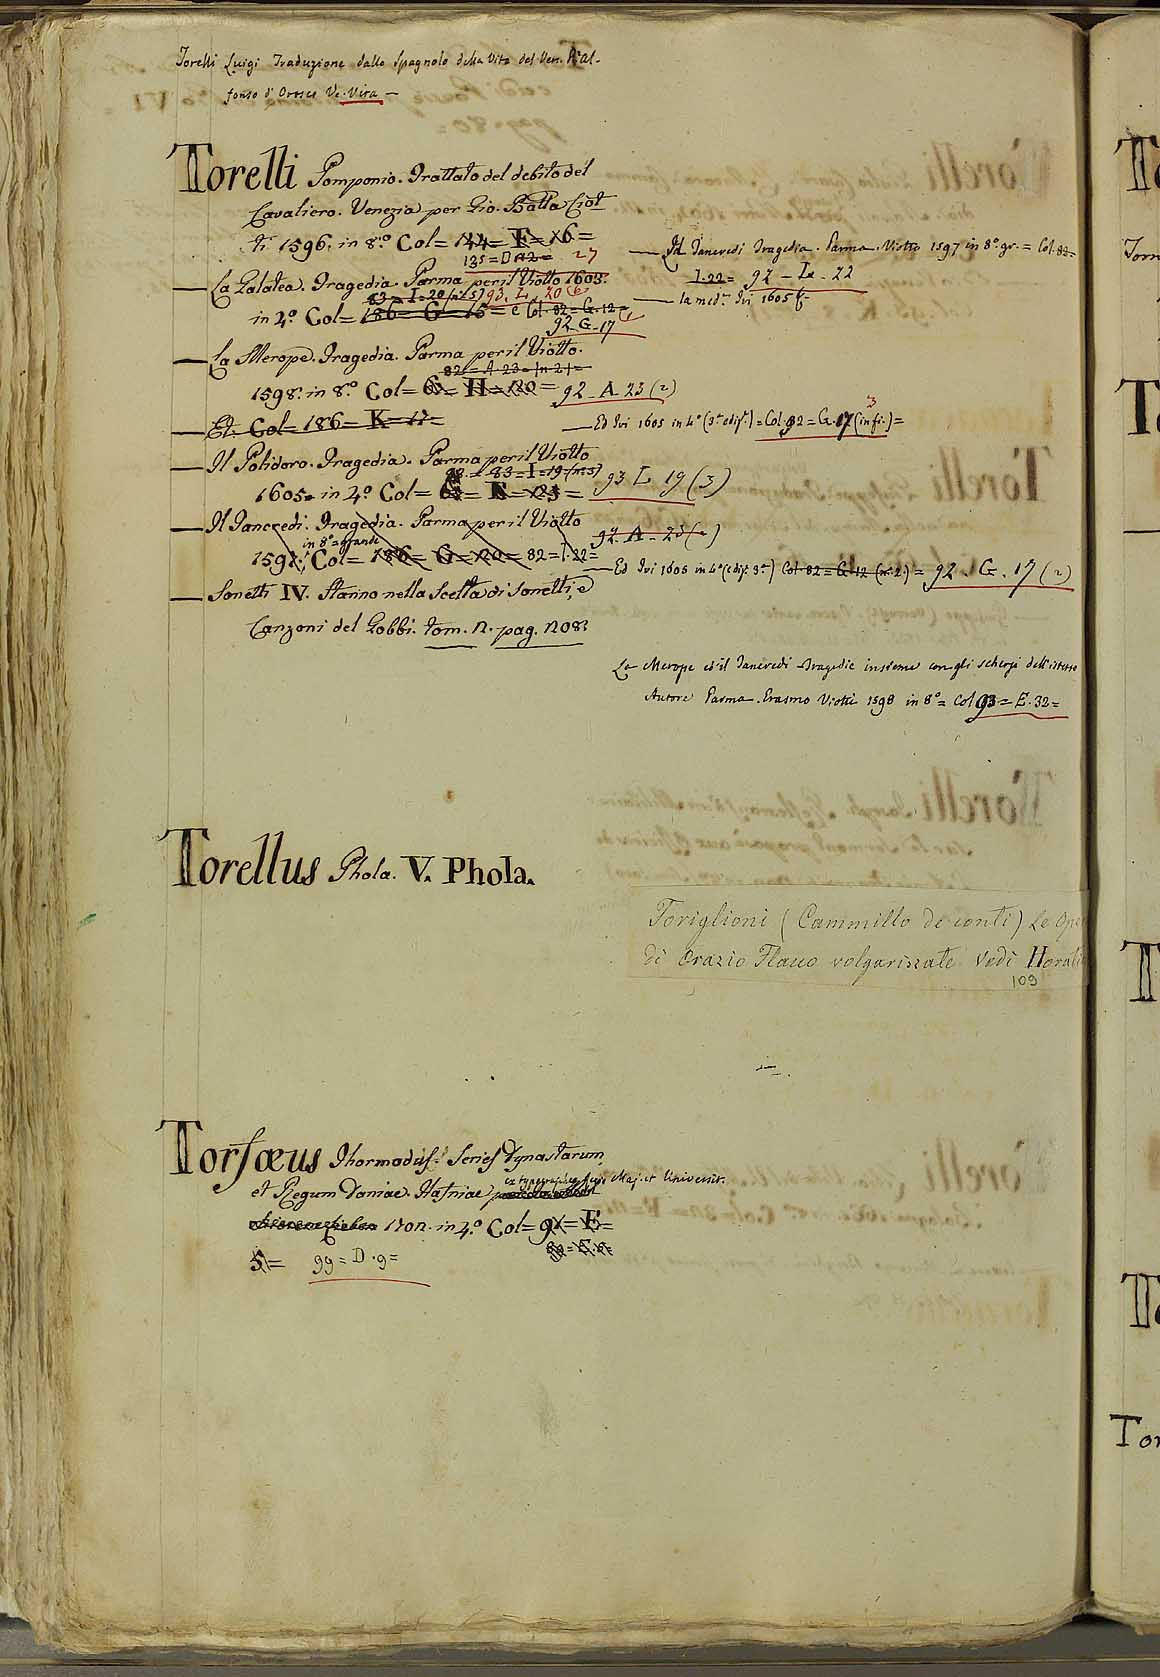 Torelli Luigi Traduzione dallo Spagnolo della Vita del Ven. P. Al-
fonso d' Orosco Ve. Vita —
Torelli Pomponio. Trattato del debito del
Cavaliero. Venezia per Gio. Batta Ciot
ti 1596. in 8.º Col= 144= F= 16=
135= D 12= 27
— La Galatea. Tragedia. Parma per il Viotto 1603.
83= I-20 (n. 5) 93. L. 20 (6
in 4.º Col= 186= G 15= e Col. 82= G. 12=
92 G-17
— La Merope. Tragedia. Parma per il Viotto.
82= A 23= (n. 2)=
1598. in 8.º Col= H=120= 92 - A 23 (2)
— Et. Col= 186= K=17=
— Il Polidoro. Tragedia. Parma per il Viotto
83= I=19 (n. 3)
1605. in 4.º Col= 93 L 19 (3)
— Il Tancredi. Tragedia. Parma per il Viotto
in 8.º grande
1597. Col= 186= G=120= 82= I. 22=
92. A - 23 ( )
— Sonetti IV. Stanno nella Scelta di Sonetti, e
Canzoni del Gobbi. tom. II. pag. 208.
— Il Tancredi Tragedia. Parma. Viotto 1597 in 8.º gr. = Col. 82=
I. 22= 92 - L - 22
— la med.ª Ivi 1605
3
— Ed Ivi 1605 in 4.º (3.ª ediz.) = Col. 92= G. 17 (in fi.)=
— Ed Ivi 1605 in 4.º (ediz. 3.ª) Col. 82= G. 12 (n. 2.) = 92. G. 17 (2)
La Merope ed il Tancredi Tragedie insieme con gli scherzi dell'istesso
Autore Parma. Erasmo Viotti 1598 in 8.º= Col 93= E. 32=
Torellus Phola. V. Phola.
Toriglioni (Cammillo de conti) Le Oper
di Orazio Flacco volgarizzate Vedi Horati
109
Torfæus Thormodus. Series Dynastarum,
ex typographeo Reg. Maj. et Universit.
et Regum Daniae. Hafniae
1702. in 4.º Col= 91= E=
5= 99= D. 9=